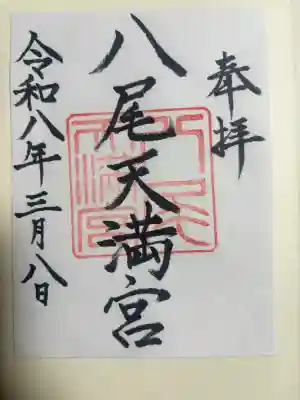 奉拝
八尾天満宮
令和八年三月八日